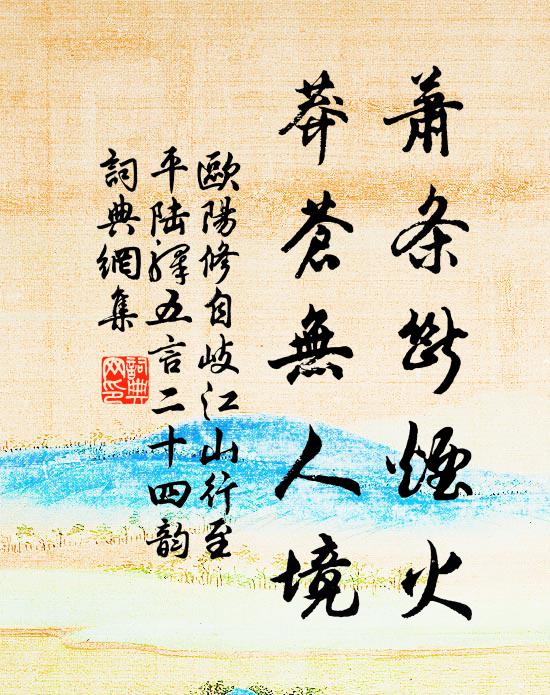 蕭条斷煙火
莽蒼無人境
歐陽修自岐江山行至
平陆驛五言二十四韵
詞典網集
詞典
网印